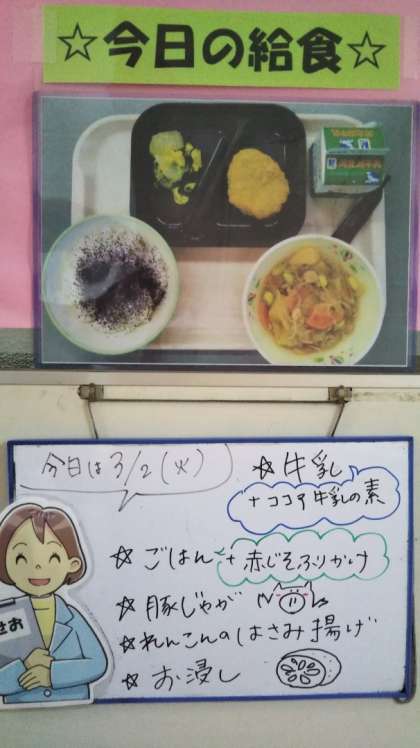 ☆今日の給食☆
今日は3/2(火)
☆牛乳
+ココア牛乳の素
☆ごはん+赤じそふりかけ
☆豚じゃが
☆れんこんのはさみ揚げ
☆お浸し